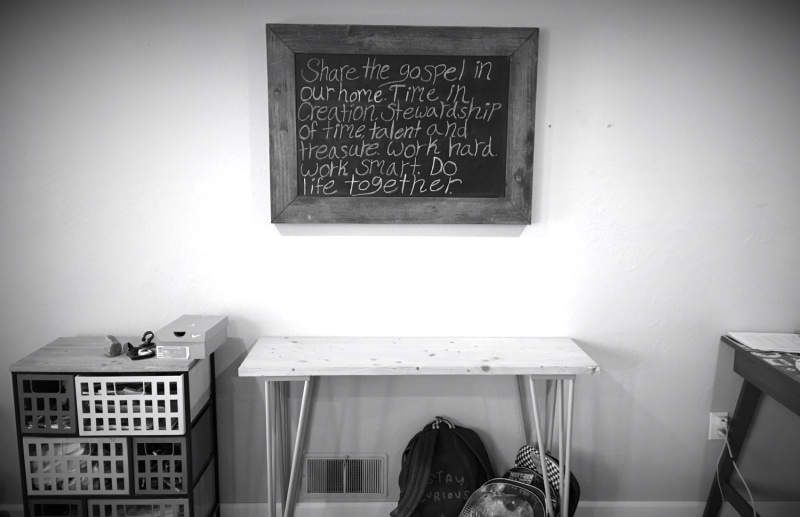 Share the gospel in
our home. Time in
Creation. Stewardship
of time talent and
treasure. Work hard.
Work smart. Do
life together.
STAY
CURIOUS